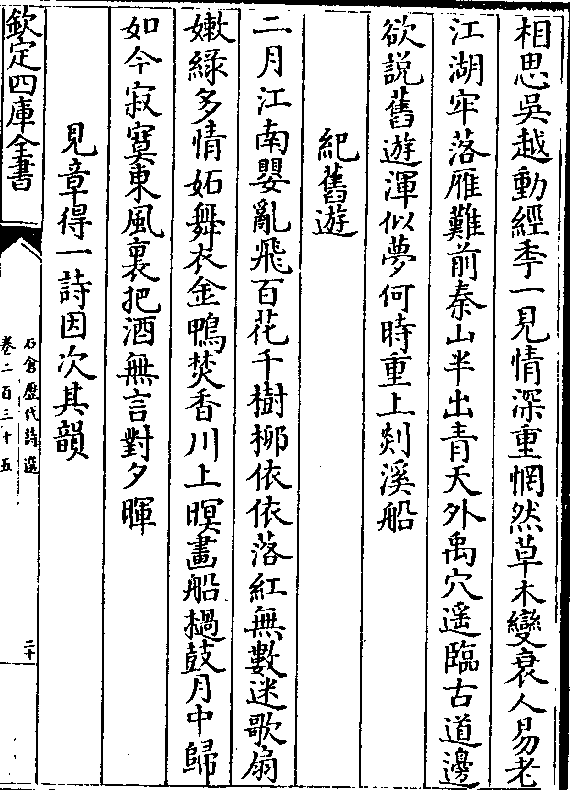 相思吳越動經季一見情深重惘然草木變衰人易老
江湖牢落雁難前秦山半出青天外禹穴遥臨古道邊
欲説舊遊渾似夢何時重上剡溪船
紀舊遊
二月江南嬰亂飛百花千樹栁依依落紅無數迷歌扇
嫩緑多情妬舞衣金鴨焚香川上暝畫船檛鼓月中歸
如今寂寞東風裏把酒無言對夕暉
見章得一詩因次其韻
欽定四庫全書
石倉歷代詩選
卷二百三十五
二十